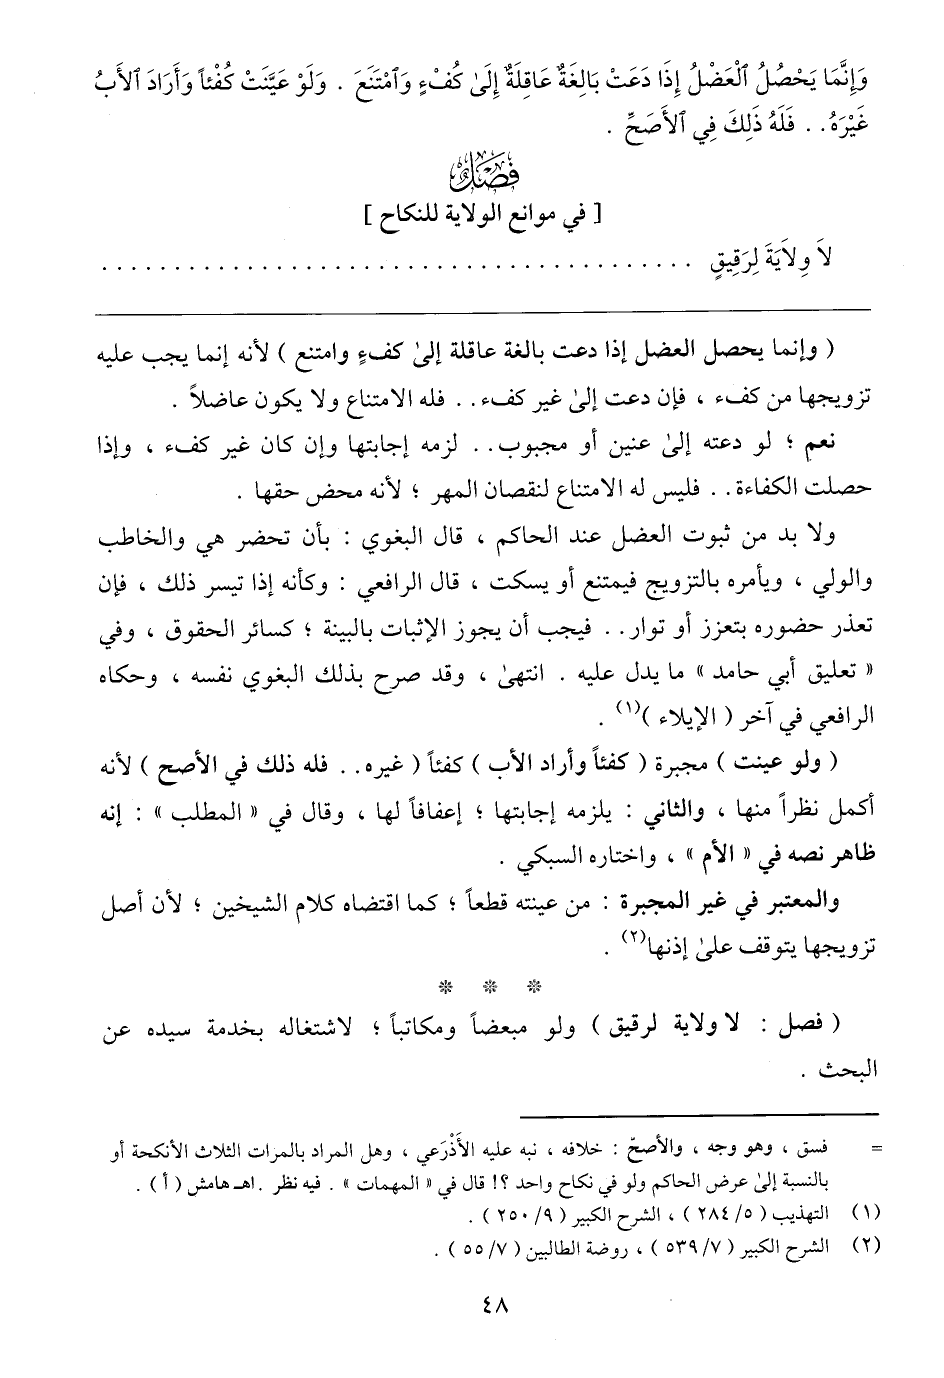 وَإِنَّمَا يَحْصُلُ ٱلْعَضْلُ إِذَا دَعَتْ بَالِغَةٌ عَاقِلَةٌ إِلَىٰ كُفْءٍ وَٱمْتَنَعَ . وَلَوْ عَيَّنَتْ كُفْئاً وَأَرَادَ ٱلأَبُ
غَيْرَهُ.. فَلَهُ ذَلِكَ فِي ٱلأَصَحِّ .
فَصْلٌ
[ في موانع الولاية للنكاح ]
لاَ وِلاَيَةَ لِرَقِيقٍ . . . . . . . . . . . . . . . . . . . . . . . . . . . . . . . . . . . . . . . . .
( وإنما يحصل العضل إذا دعت بالغة عاقلة إلىٰ كفءٍ وامتنع ) لأنه إنما يجب عليه
تزويجها من كفء ، فإن دعت إلىٰ غير كفء.. فله الامتناع ولا يكون عاضلاً .
نعم ؛ لو دعته إلىٰ عنين أو مجبوب.. لزمه إجابتها وإن كان غير كفء ، وإذا
حصلت الكفاءة.. فليس له الامتناع لنقصان المهر ؛ لأنه محض حقها .
ولا بد من ثبوت العضل عند الحاكم ، قال البغوي : بأن تحضر هي والخاطب
والولي ، ويأمره بالتزويج فيمتنع أو يسكت ، قال الرافعي : وكأنه إذا تيسر ذلك ، فإن
تعذر حضوره بتعزز أو توار.. فيجب أن يجوز الإثبات بالبينة ؛ كسائر الحقوق ، وفي
« تعليق أبي حامد » ما يدل عليه . انتهىٰ ، وقد صرح بذلك البغوي نفسه ، وحكاه
الرافعي في آخر ( الإيلاء )(١) .
( ولو عينت ) مجبرة ( كفئاً وأراد الأب ) كفئاً ( غيره.. فله ذلك في الأصح ) لأنه
أكمل نظراً منها ، والثاني : يلزمه إجابتها ؛ إعفافاً لها ، وقال في « المطلب » : إنه
ظاهر نصه في « الأم » ، واختاره السبكي .
والمعتبر في غير المجبرة : من عينته قطعاً ؛ كما اقتضاه كلام الشيخين ؛ لأن أصل
تزويجها يتوقف علىٰ إذنها(٢) .
* * *
( فصل : لا ولاية لرقيق ) ولو مبعضاً ومكاتباً ؛ لاشتغاله بخدمة سيده عن
البحث .
= فسق ، وهو وجه ، والأصحّ : خلافه ، نبه عليه الأَذْرَعي ، وهل المراد بالمرات الثلاث الأنكحة أو
بالنسبة إلىٰ عرض الحاكم ولو في نكاح واحد ؟! قال في « المهمات » . فيه نظر .اهـ هامش ( أ ) .
(١) التهذيب ( ٥/ ٢٨٤ ) ، الشرح الكبير ( ٩/ ٢٥٠ ) .
(٢) الشرح الكبير ( ٧/ ٥٣٩ ) ، روضة الطالبين ( ٧/ ٥٥ ) .
٤٨